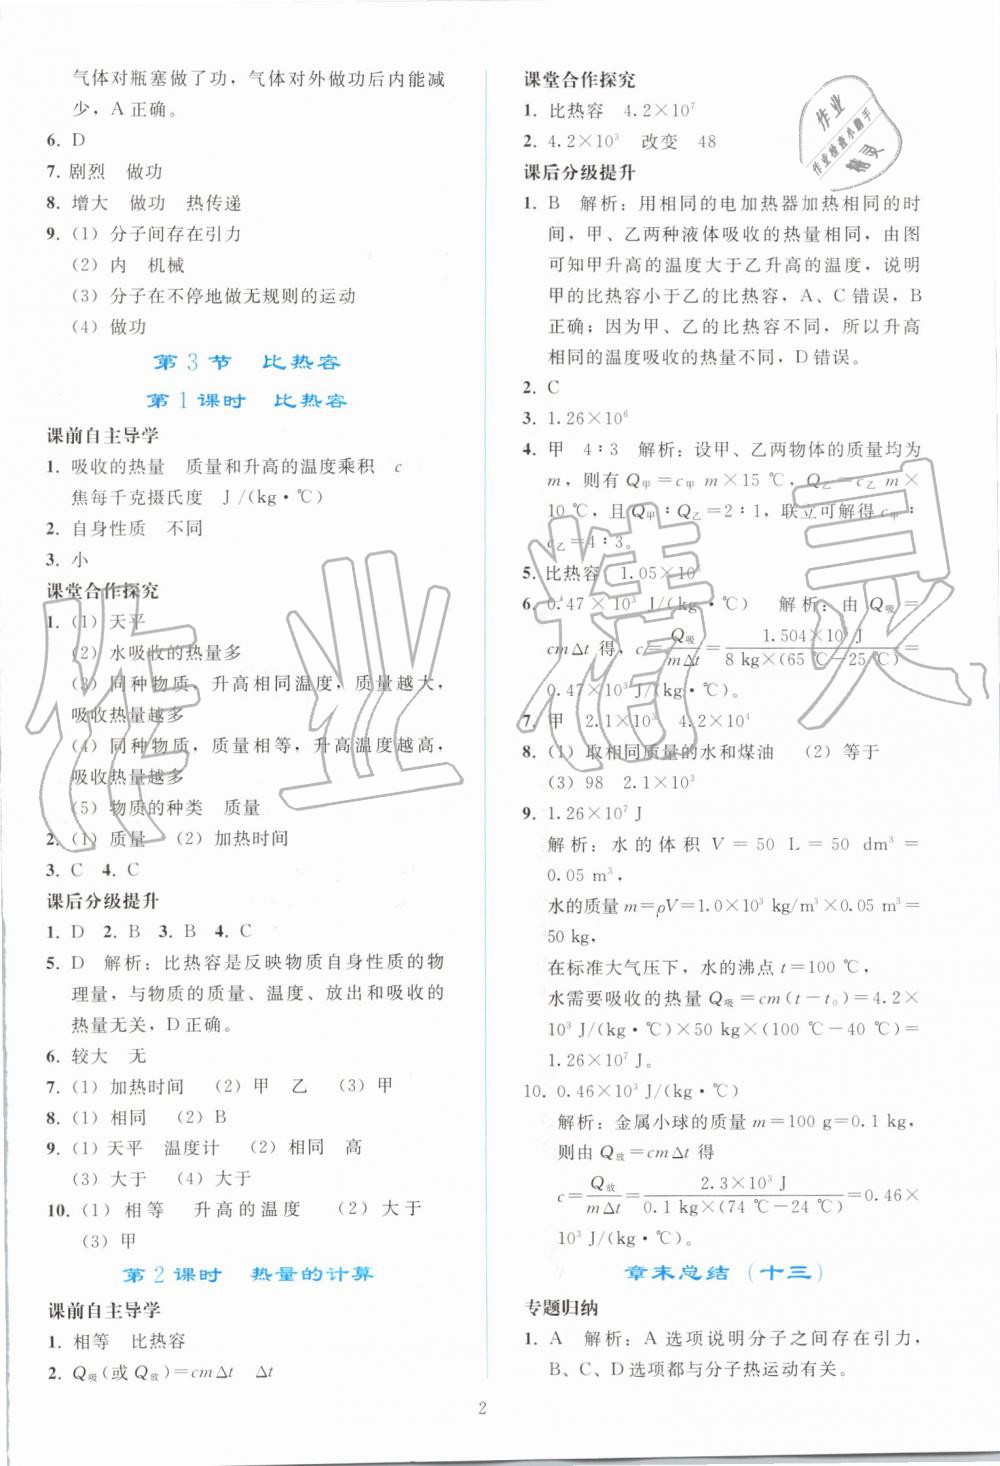 气体对瓶塞做了功，气体对外做功后内能减
少，A正确。
6. D
7. 剧烈　做功
8. 增大　做功　热传递
9. (1) 分子间存在引力
(2) 内　机械
(3) 分子在不停地做无规则的运动
(4) 做功
第3节　比热容
第1课时　比热容
课前自主导学
1. 吸收的热量　质量和升高的温度乘积　c
焦每千克摄氏度　J/(kg·℃)
2. 自身性质　不同
3. 小
课堂合作探究
1. (1) 天平
(2) 水吸收的热量多
(3) 同种物质，升高相同温度，质量越大，
吸收热量越多
(4) 同种物质，质量相等，升高温度越高，
吸收热量越多
(5) 物质的种类　质量
2. (1) 质量　(2) 加热时间
3. C 4. C
课后分级提升
1. D 2. B 3. B 4. C
5. D　解析：比热容是反映物质自身性质的物
理量，与物质的质量、温度、放出和吸收的
热量无关，D正确。
6. 较大　无
7. (1) 加热时间　(2) 甲　乙　(3) 甲
8. (1) 相同　(2) B
9. (1) 天平　温度计　(2) 相同　高
(3) 大于　(4) 大于
10. (1) 相等　升高的温度　(2) 大于
(3) 甲
第2课时　热量的计算
课前自主导学
1. 相等　比热容
2. Q吸(或Q放)=cmΔt　Δt
课堂合作探究
1. 比热容　4.2×10⁷
2. 4.2×10³　改变　48
课后分级提升
1. B　解析：用相同的电加热器加热相同的时
间，甲、乙两种液体吸收的热量相同，由图
可知甲升高的温度大于乙升高的温度，说明
甲的比热容小于乙的比热容，A、C错误，B
正确；因为甲、乙的比热容不同，所以升高
相同的温度吸收的热量不同，D错误。
2. C
3. 1.26×10⁶
4. 甲　4∶3　解析：设甲、乙两物体的质量均为
m，则有Q甲=c甲 m×15 ℃，Q乙=c乙 m×
10 ℃，且Q甲∶Q乙=2∶1，联立可解得c甲∶
c乙=4∶3。
5. 比热容　1.05×10
6. 0.47×10³ J/(kg·℃)　解析：由Q吸=
cmΔt得，c=Q吸/mΔt=1.504×10 J/8 kg×(65 ℃-25 ℃)=
0.47×10³ J/(kg·℃)。
7. 甲　2.1×10³　4.2×10⁴
8. (1) 取相同质量的水和煤油　(2) 等于
(3) 98　2.1×10³
9. 1.26×10⁷ J
解析：水的体积V=50 L=50 dm³=
0.05 m³，
水的质量m=ρV=1.0×10³ kg/m³×0.05 m³=
50 kg，
在标准大气压下，水的沸点t=100 ℃，
水需要吸收的热量Q吸=cm(t-t₀)=4.2×
10³ J/(kg·℃)×50 kg×(100 ℃-40 ℃)=
1.26×10⁷ J。
10. 0.46×10³ J/(kg·℃)
解析：金属小球的质量m=100 g=0.1 kg，
则由Q放=cmΔt得
c=Q放/mΔt=2.3×10³ J/0.1 kg×(74 ℃-24 ℃)=0.46×
10³ J/(kg·℃)。
章末总结(十三)
专题归纳
1. A　解析：A选项说明分子之间存在引力，
B、C、D选项都与分子热运动有关。
2
作业
作业检查小助手
精灵
作业精灵